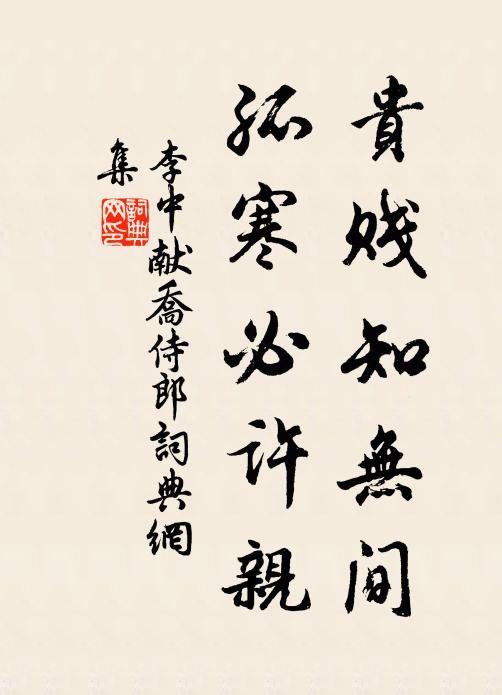 貴賤知無間
孤寒必許親
李中献喬侍郎詞典網
集
詞典網印